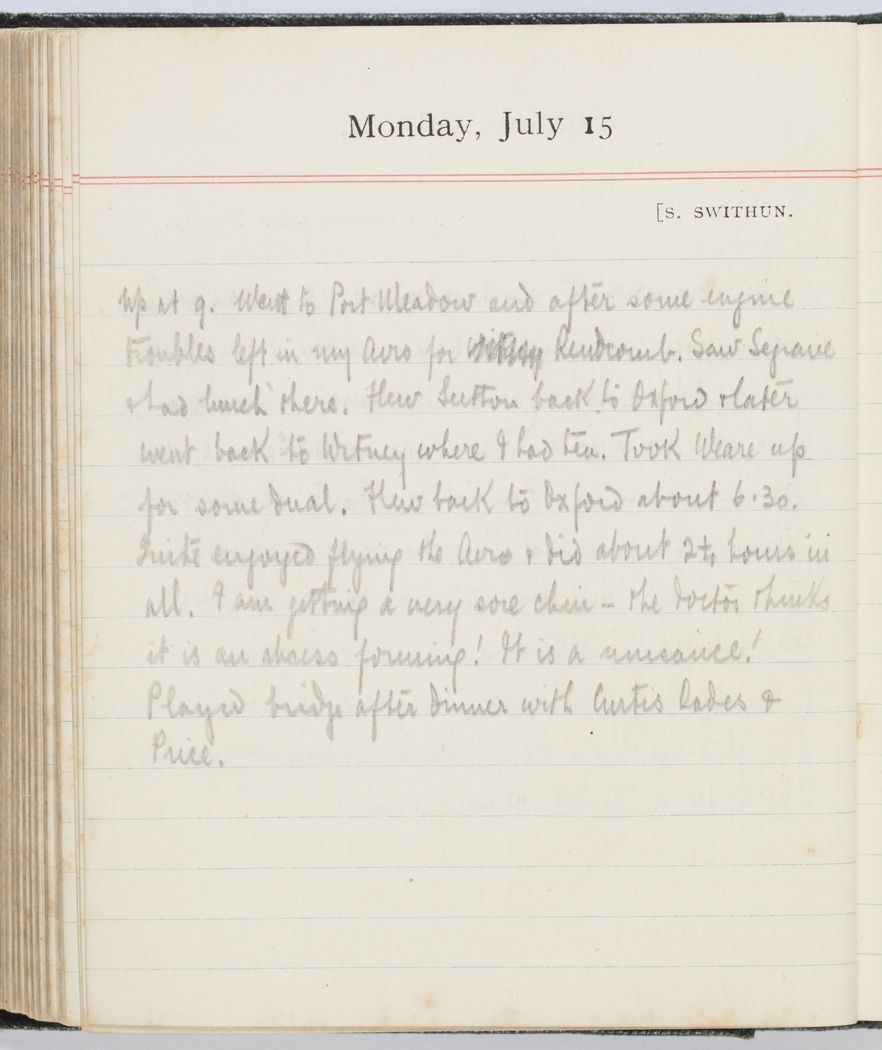 Monday, July 15
[S. SWITHUN.
Up at 9. Went to Port Meadow and after some engine
troubles left in my Avro for Rendcomb. Saw Segrave
& had lunch there. Flew Sutton back to Oxford & later
went back to Witney where I had tea. Took Weare up
for some dual. Flew back to Oxford about 6.30.
Quite enjoyed flying the Avro & did about hours in
all. I am getting a very sore chin – the doctor thinks
it is an abcess forming! It is a nuisance!
Played bridge after dinner with Curtis &
Price.